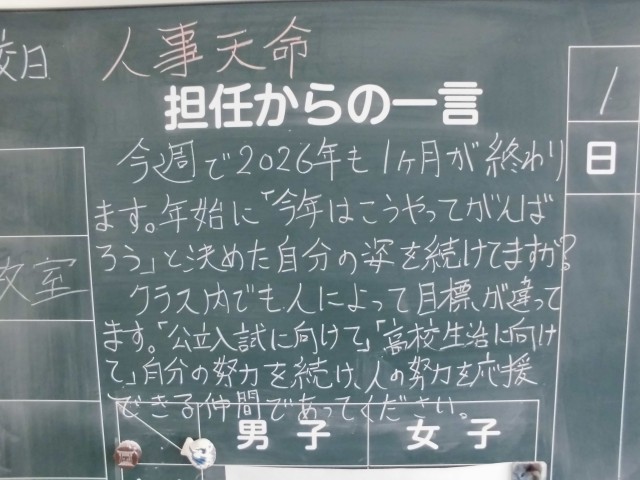 校日
人事天命
担任からの一言
1
日
今週で2026年も1ヶ月が終わり
ます。年始に「今年はこうやってがんば
ろう」と決めた自分の姿を続けてますか?
教室
クラス内でも人によって目標が違って
ます。「公立入試に向けて」「高校生活に向け
て」自分の努力を続け、人の努力を応援
できる仲間であってください。
男子
女子